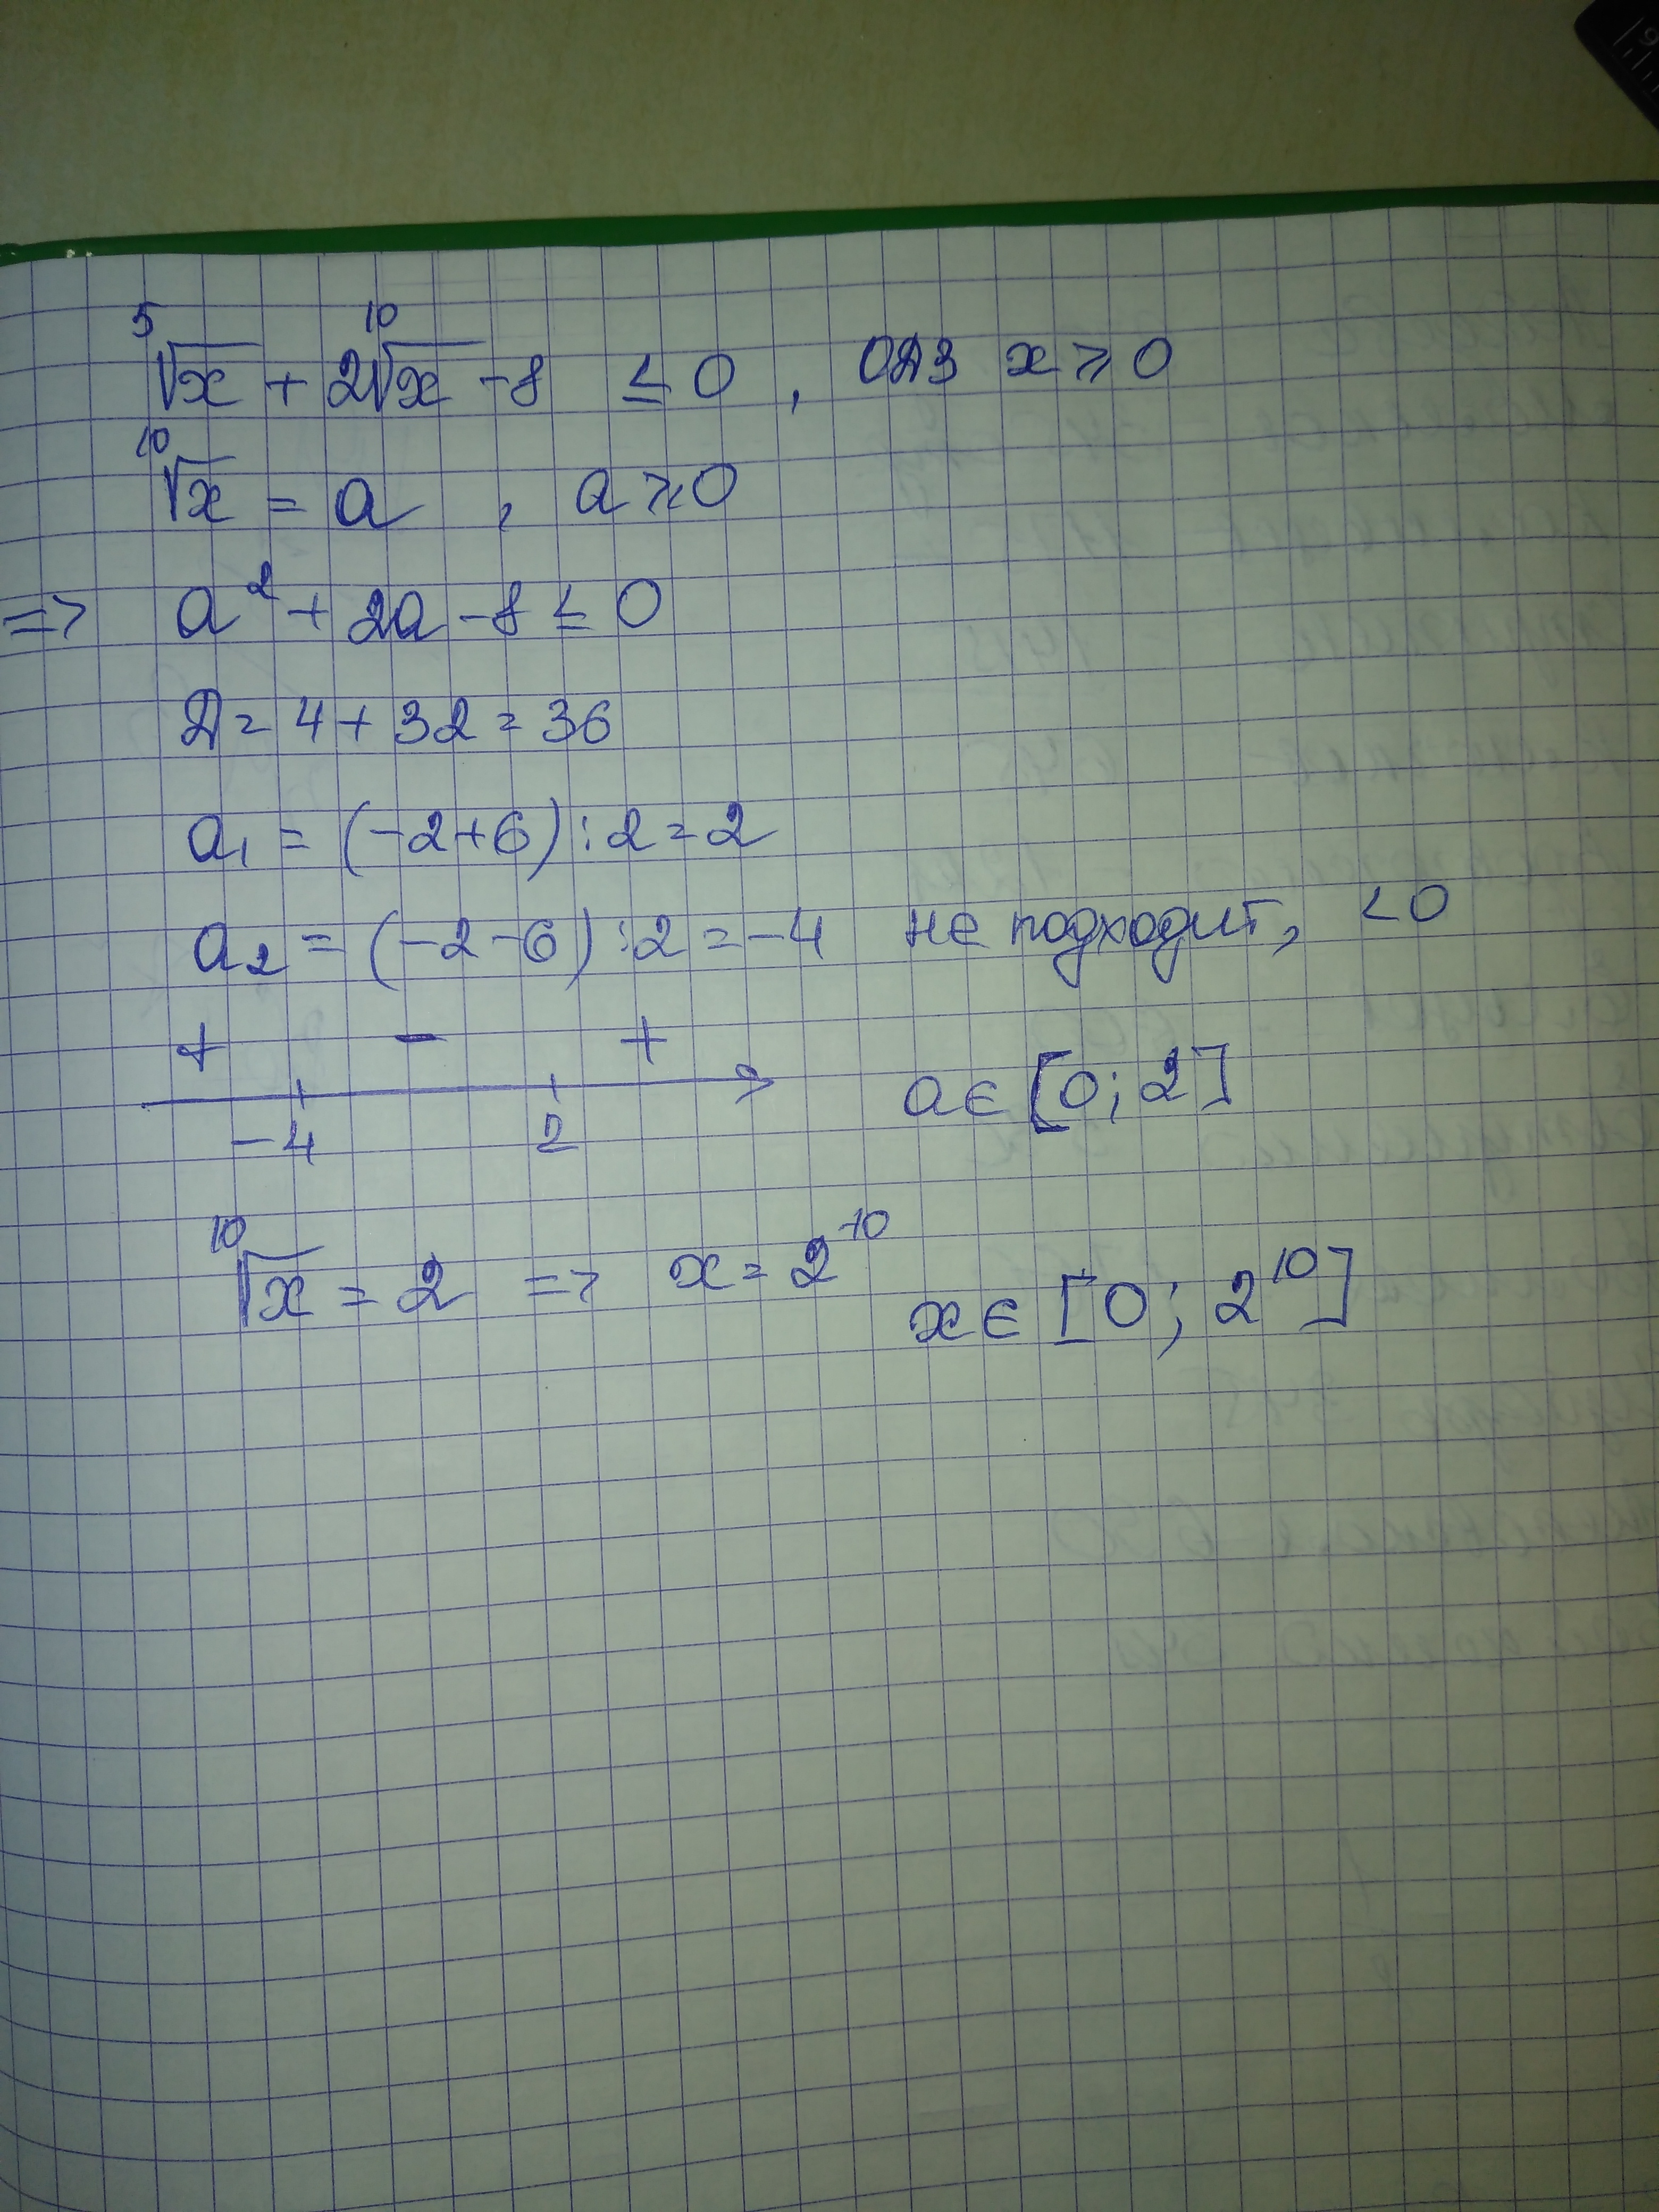 ⁵√x + 2¹⁰√x - 8 ≤ 0, ОДЗ x ≥ 0
¹⁰√x = a, a ≥ 0
=> a² + 2a - 8 ≤ 0
Д = 4 + 32 = 36
a₁ = (-2+6) : 2 = 2
a₂ = (-2-6) : 2 = -4 не подходит, < 0
+ - +
-4 2 a ∈ [0; 2]
¹⁰√x = 2 => x = 2¹⁰ x ∈ [0; 2¹⁰]